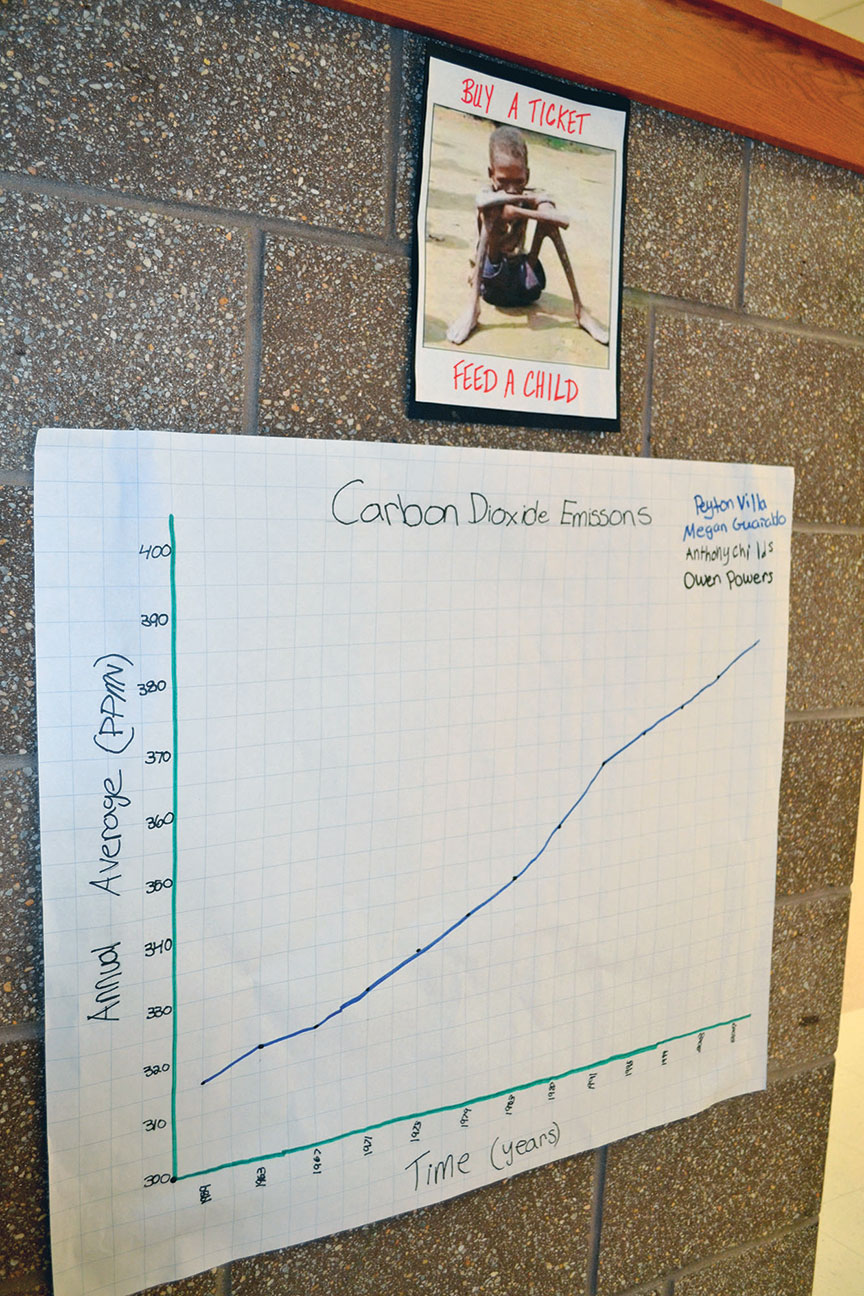 BUY A TICKET
FEED A CHILD
Carbon Dioxide Emissons
Peyton Villa
Megan
Anthony Childs
Owen Powers
Annual Average (PPM)
400
390
380
370
360
350
340
330
320
310
300
1959
1963
1967
1971
1975
1979
1983
Time (years)